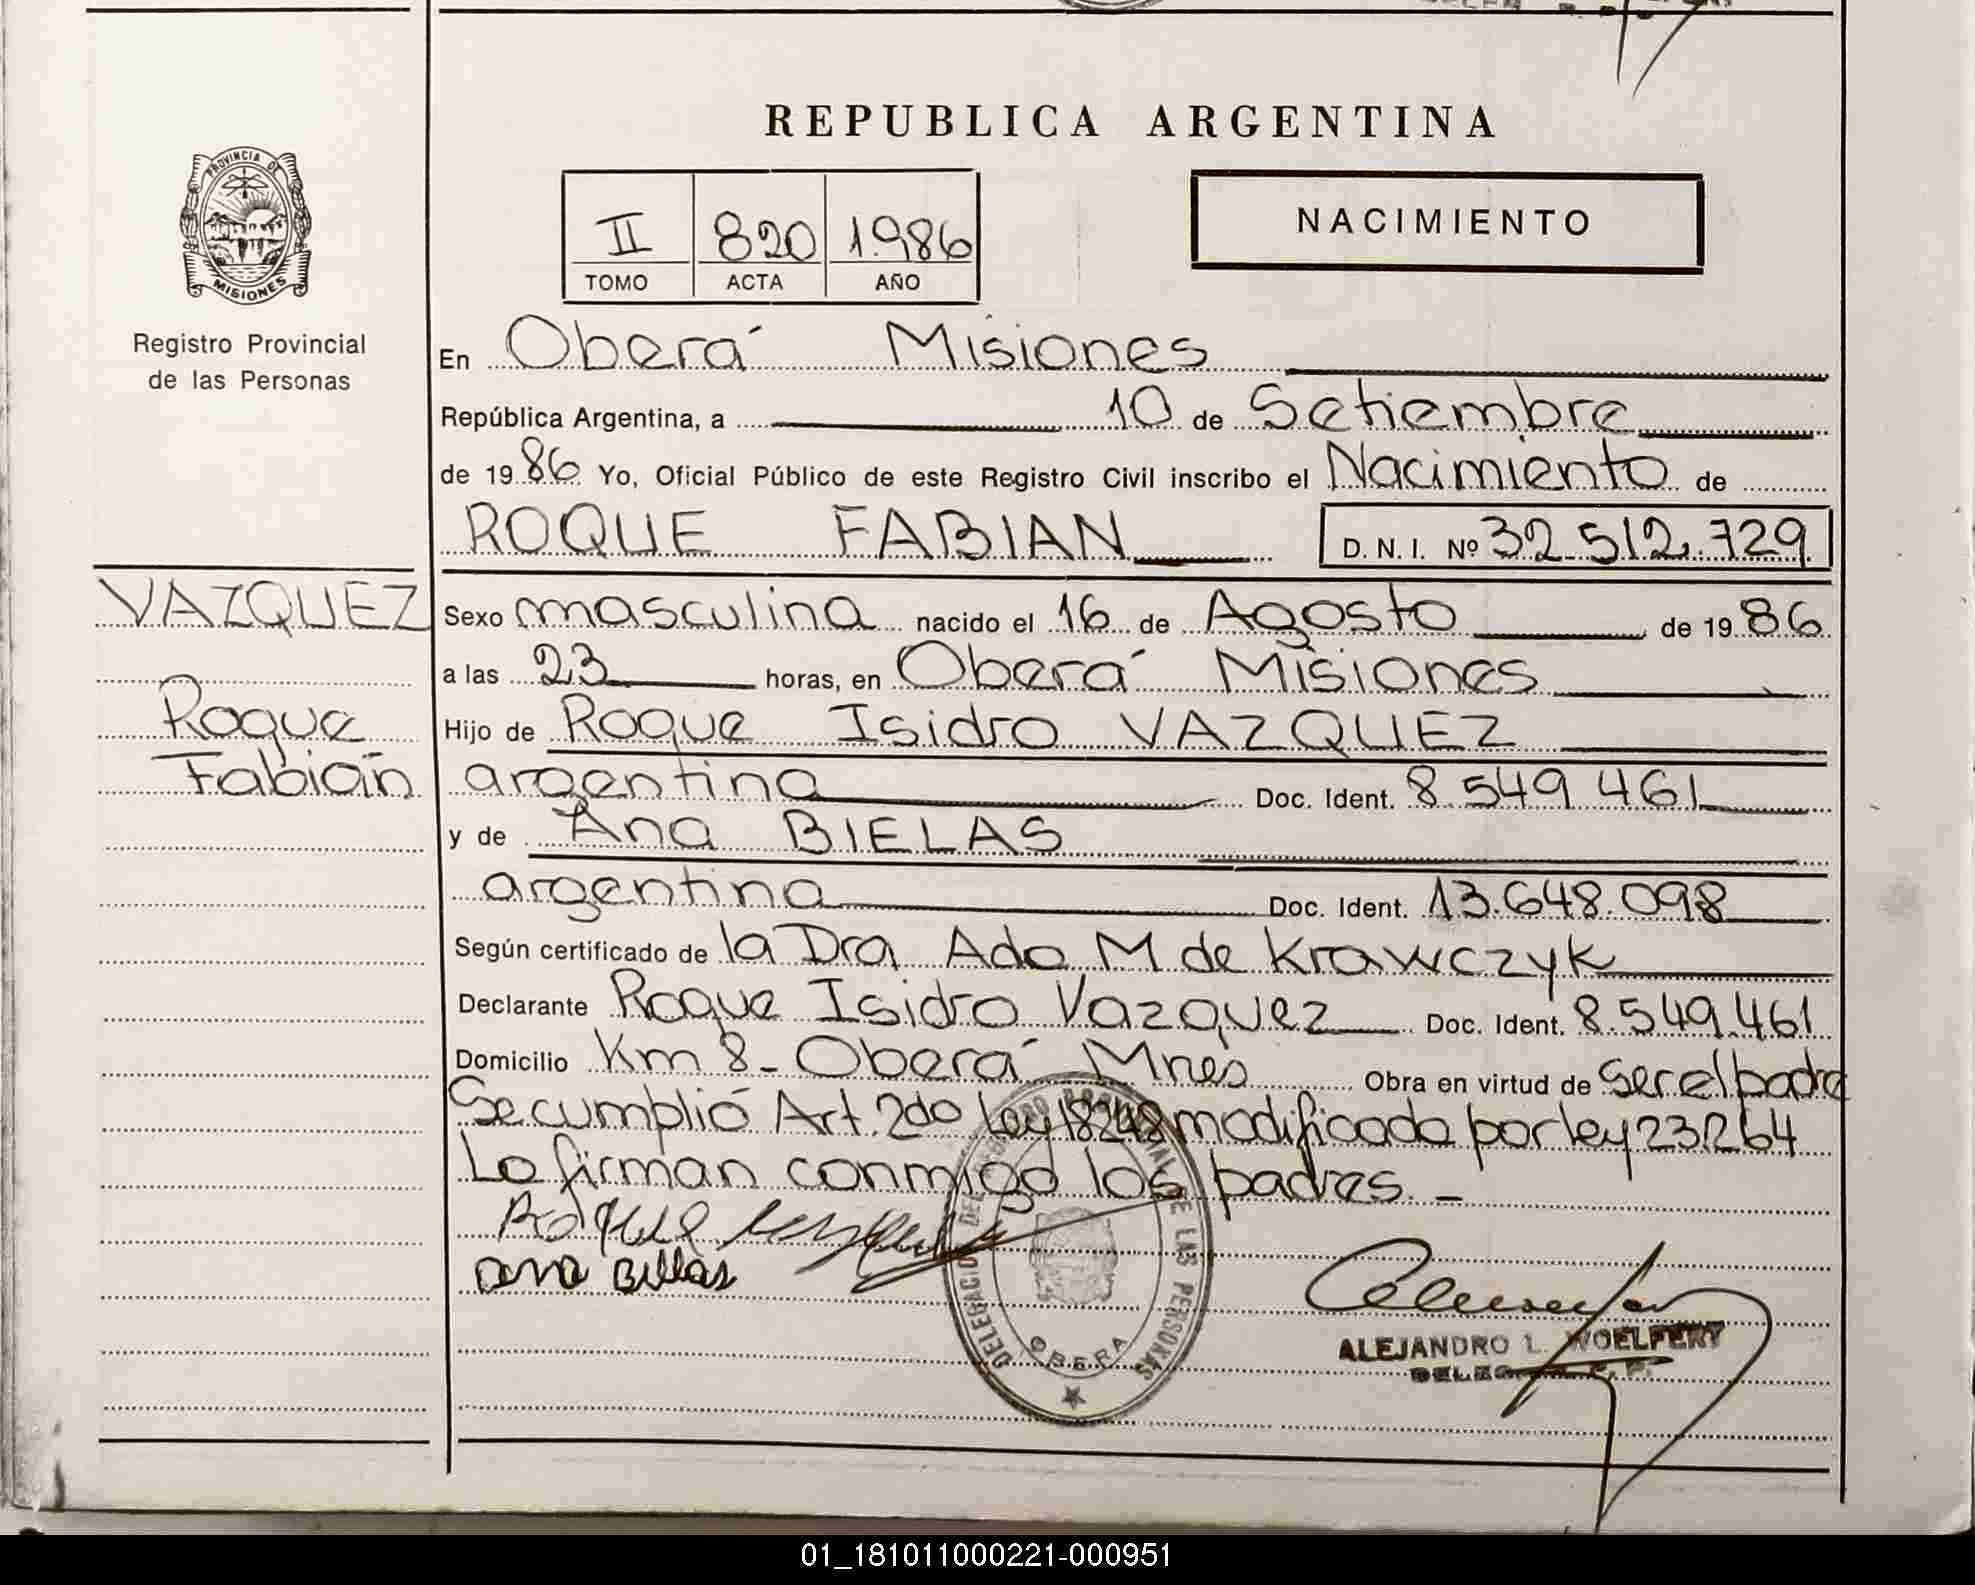 REPUBLICA ARGENTINA
PROVINCIA DE
MISIONES
Registro Provincial
de las Personas
II 820 1.986
TOMO ACTA AÑO
NACIMIENTO
En Oberá Misiones
República Argentina, a 10 de Setiembre
de 19 86 Yo, Oficial Público de este Registro Civil inscribo el Nacimiento de
ROQUE FABIAN D.N.I. Nº 32.512.729
VAZQUEZ
Roque
Fabián
Sexo masculina nacido el 16 de Agosto de 19 86
a las 23 horas, en Oberá Misiones
Hijo de Roque Isidro VAZQUEZ
argentina Doc. Ident. 8.549.461
y de Ana BIELAS
argentina Doc. Ident. 13.648.098
Según certificado de la Dra Ada M de Krawczyk
Declarante Roque Isidro Vazquez Doc. Ident. 8.549.461
Domicilio Km 8- Oberá Mnes Obra en virtud de ser el padre
Se cumplió Art. 2do Ley 18248 modificada por ley 23264
Lo firman conmigo los padres. -
Roque
ana Bielas
DELEGACION DEL REGISTRO PROVINCIAL DE LAS PERSONAS
OBERA
ALEJANDRO L. WOELFERT
01_181011000221-000951